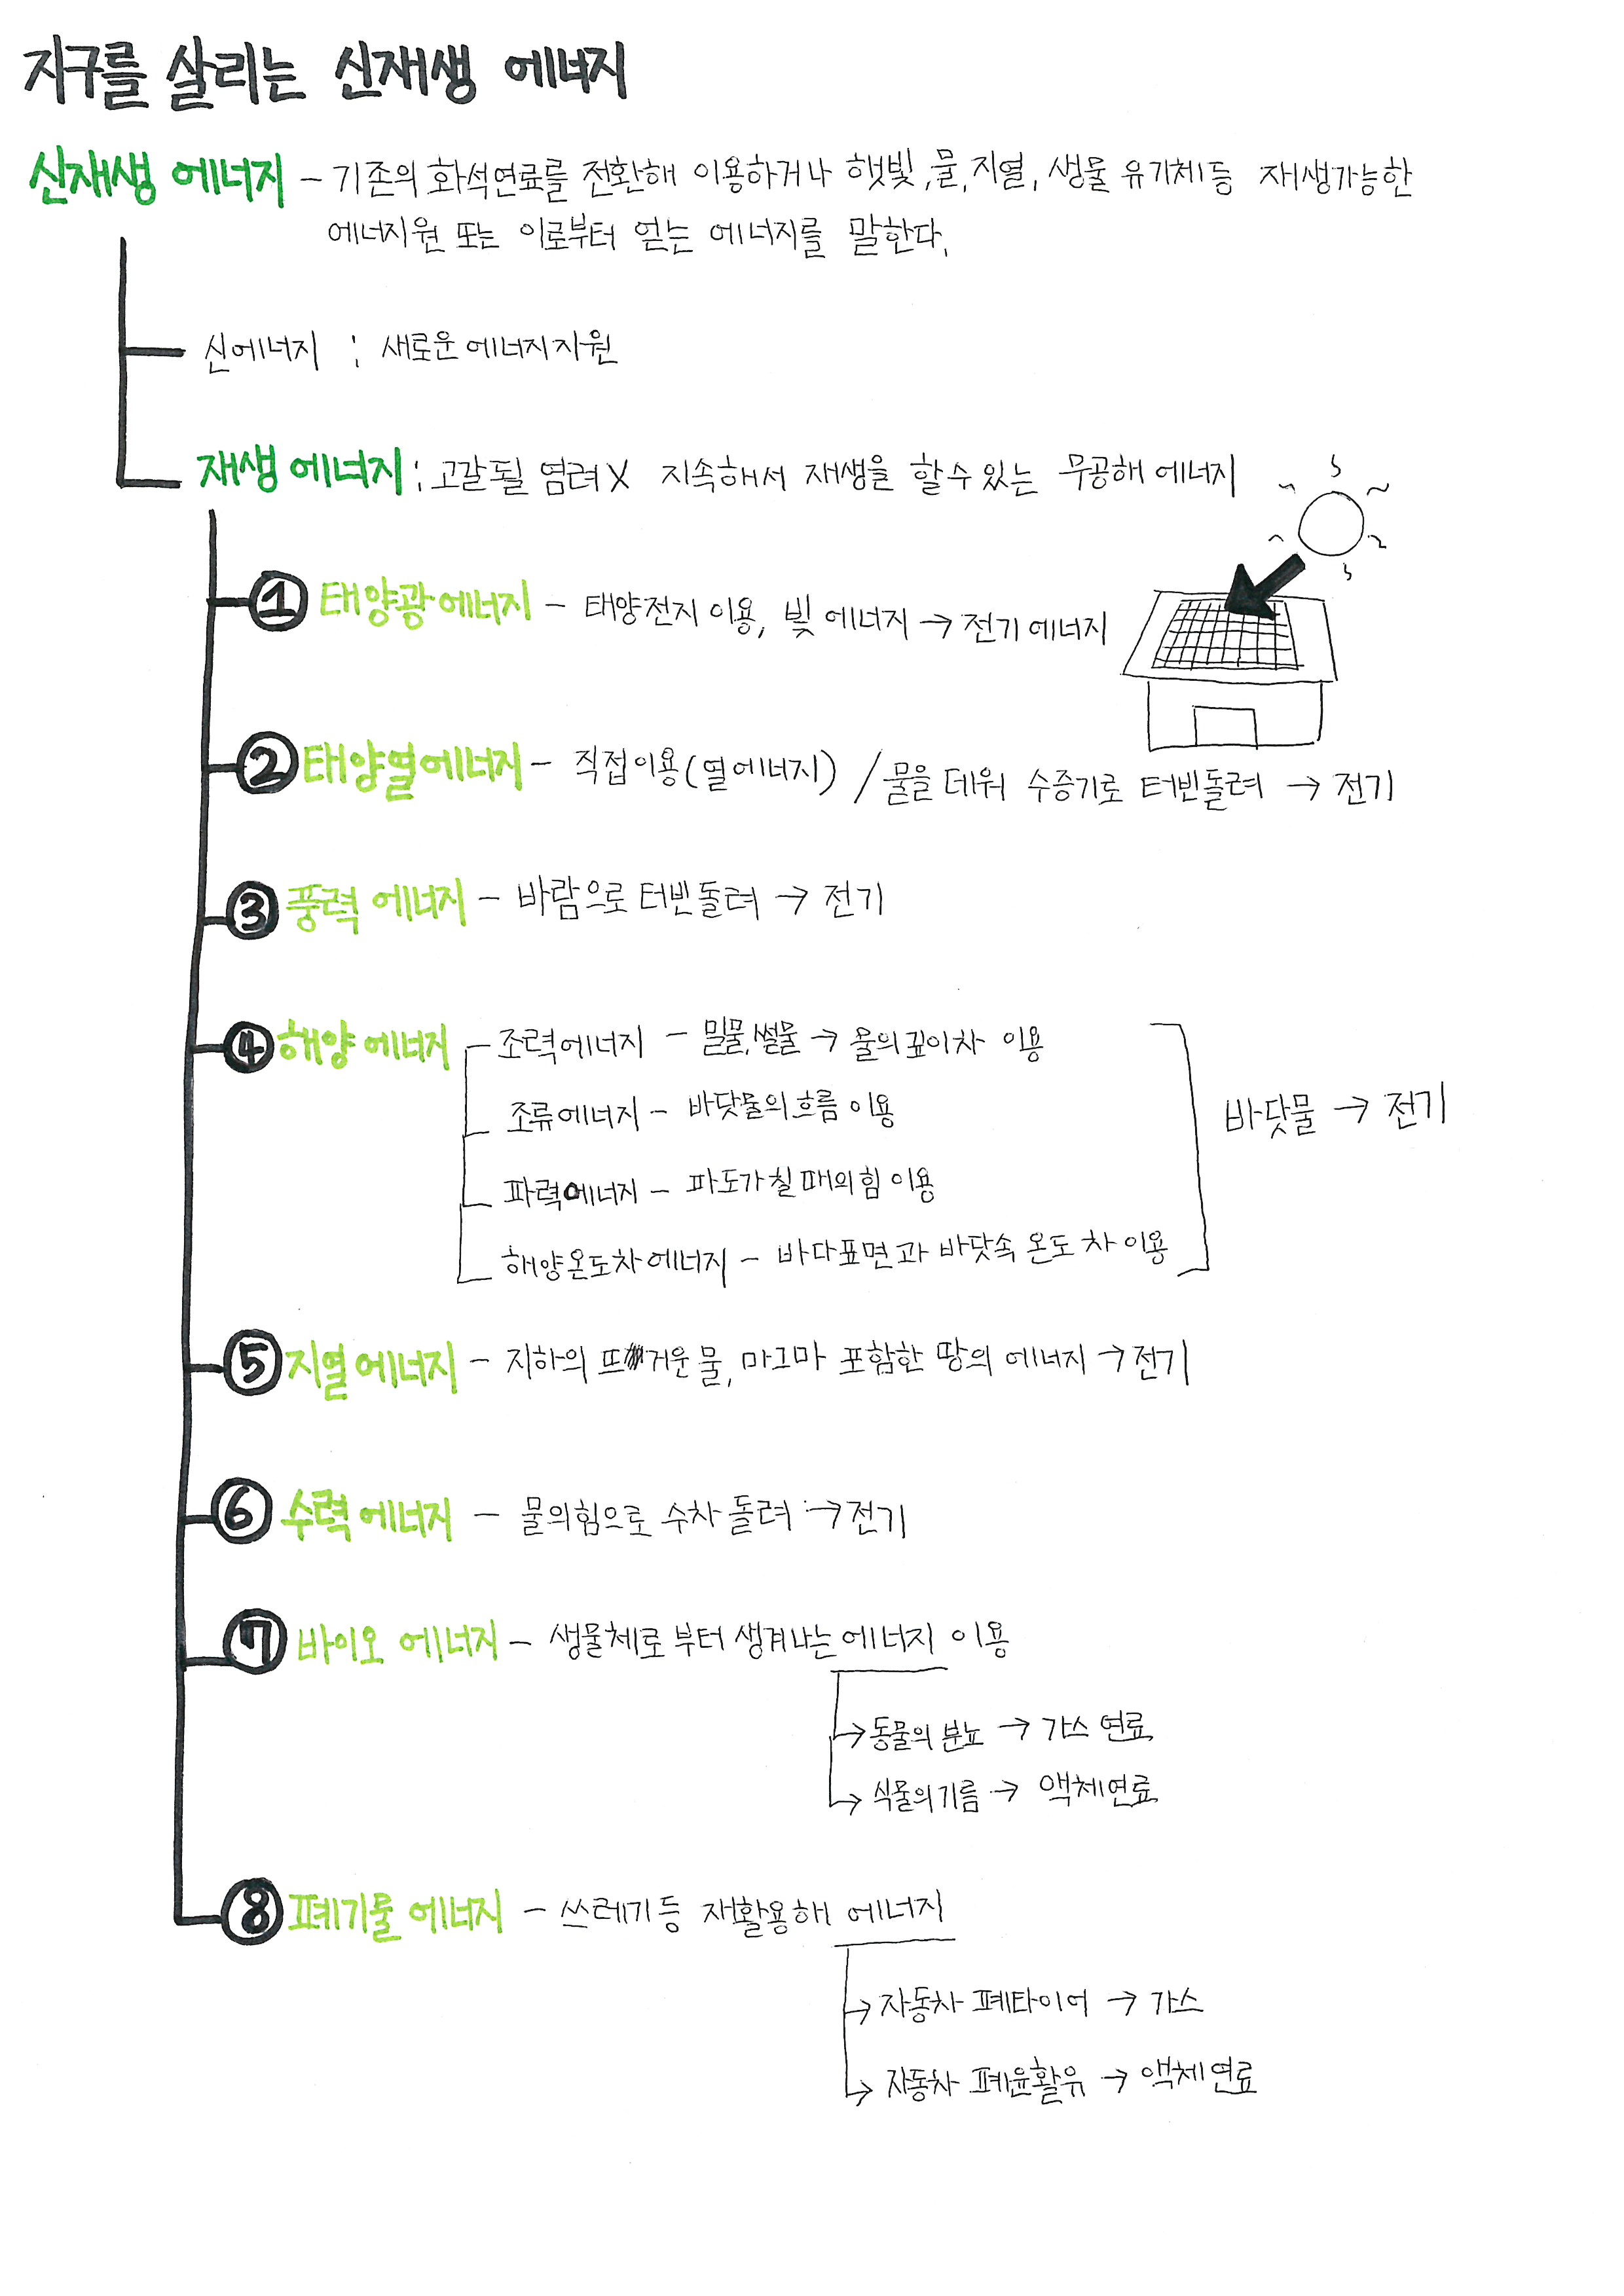 지구를 살리는 신재생 에너지
신재생 에너지 - 기존의 화석연료를 전환해 이용하거나 햇빛, 물, 지열, 생물 유기체등 재생가능한
에너지원 또는 이로부터 얻는 에너지를 말한다.
신에너지 : 새로운 에너지 지원
재생 에너지 : 고갈될 염려 X 지속해서 재생을 할 수 있는 무공해 에너지
① 태양광 에너지 - 태양전지 이용, 빛 에너지 → 전기 에너지
② 태양열에너지 - 직접이용(열에너지) / 물을 데워 수증기로 터빈돌려 → 전기
③ 풍력 에너지 - 바람으로 터빈돌려 → 전기
④ 해양 에너지 조력에너지 - 밀물, 썰물 → 물의 깊이차 이용
조류에너지 - 바닷물의 흐름 이용
바닷물 → 전기
파력에너지 - 파도가 칠 때의 힘 이용
해양온도차에너지 - 바다표면과 바닷속 온도 차 이용
⑤ 지열 에너지 - 지하의 뜨거운 물, 마그마 포함한 땅의 에너지 → 전기
⑥ 수력 에너지 - 물의 힘으로 수차 돌려 → 전기
⑦ 바이오 에너지 - 생물체로 부터 생겨나는 에너지 이용
→ 동물의 분뇨 → 가스 연료
→ 식물의 기름 → 액체연료
⑧ 폐기물 에너지 - 쓰레기 등 재활용해 에너지
→ 자동차 폐타이어 → 가스
→ 자동차 폐윤활유 → 액체연료